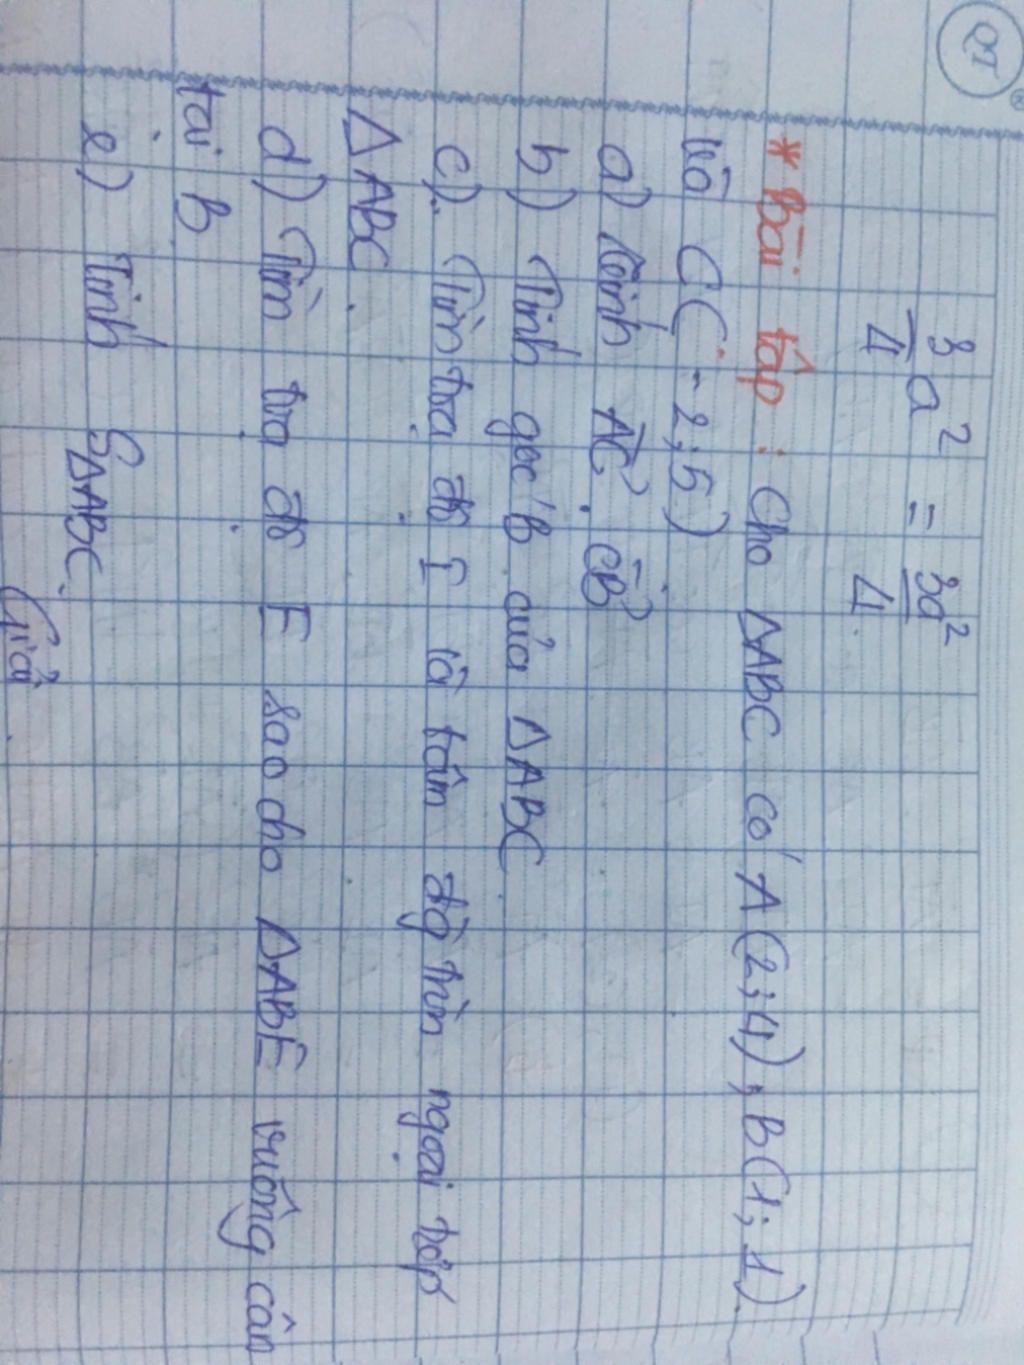 QT
3/4 a² = 3a²/4
* Bài tập : Cho ΔABC có A(2;4), B(1;1)
và C(-2;5)
a) Tính AC→ . CB→
b) Tính góc B của ΔABC.
c) Tìm tọa độ I là tâm đg tròn ngoại tiếp
ΔABC.
d) Tìm tọa độ E sao cho ΔABE vuông cân
tại B
e) Tính SΔABC.
Giải